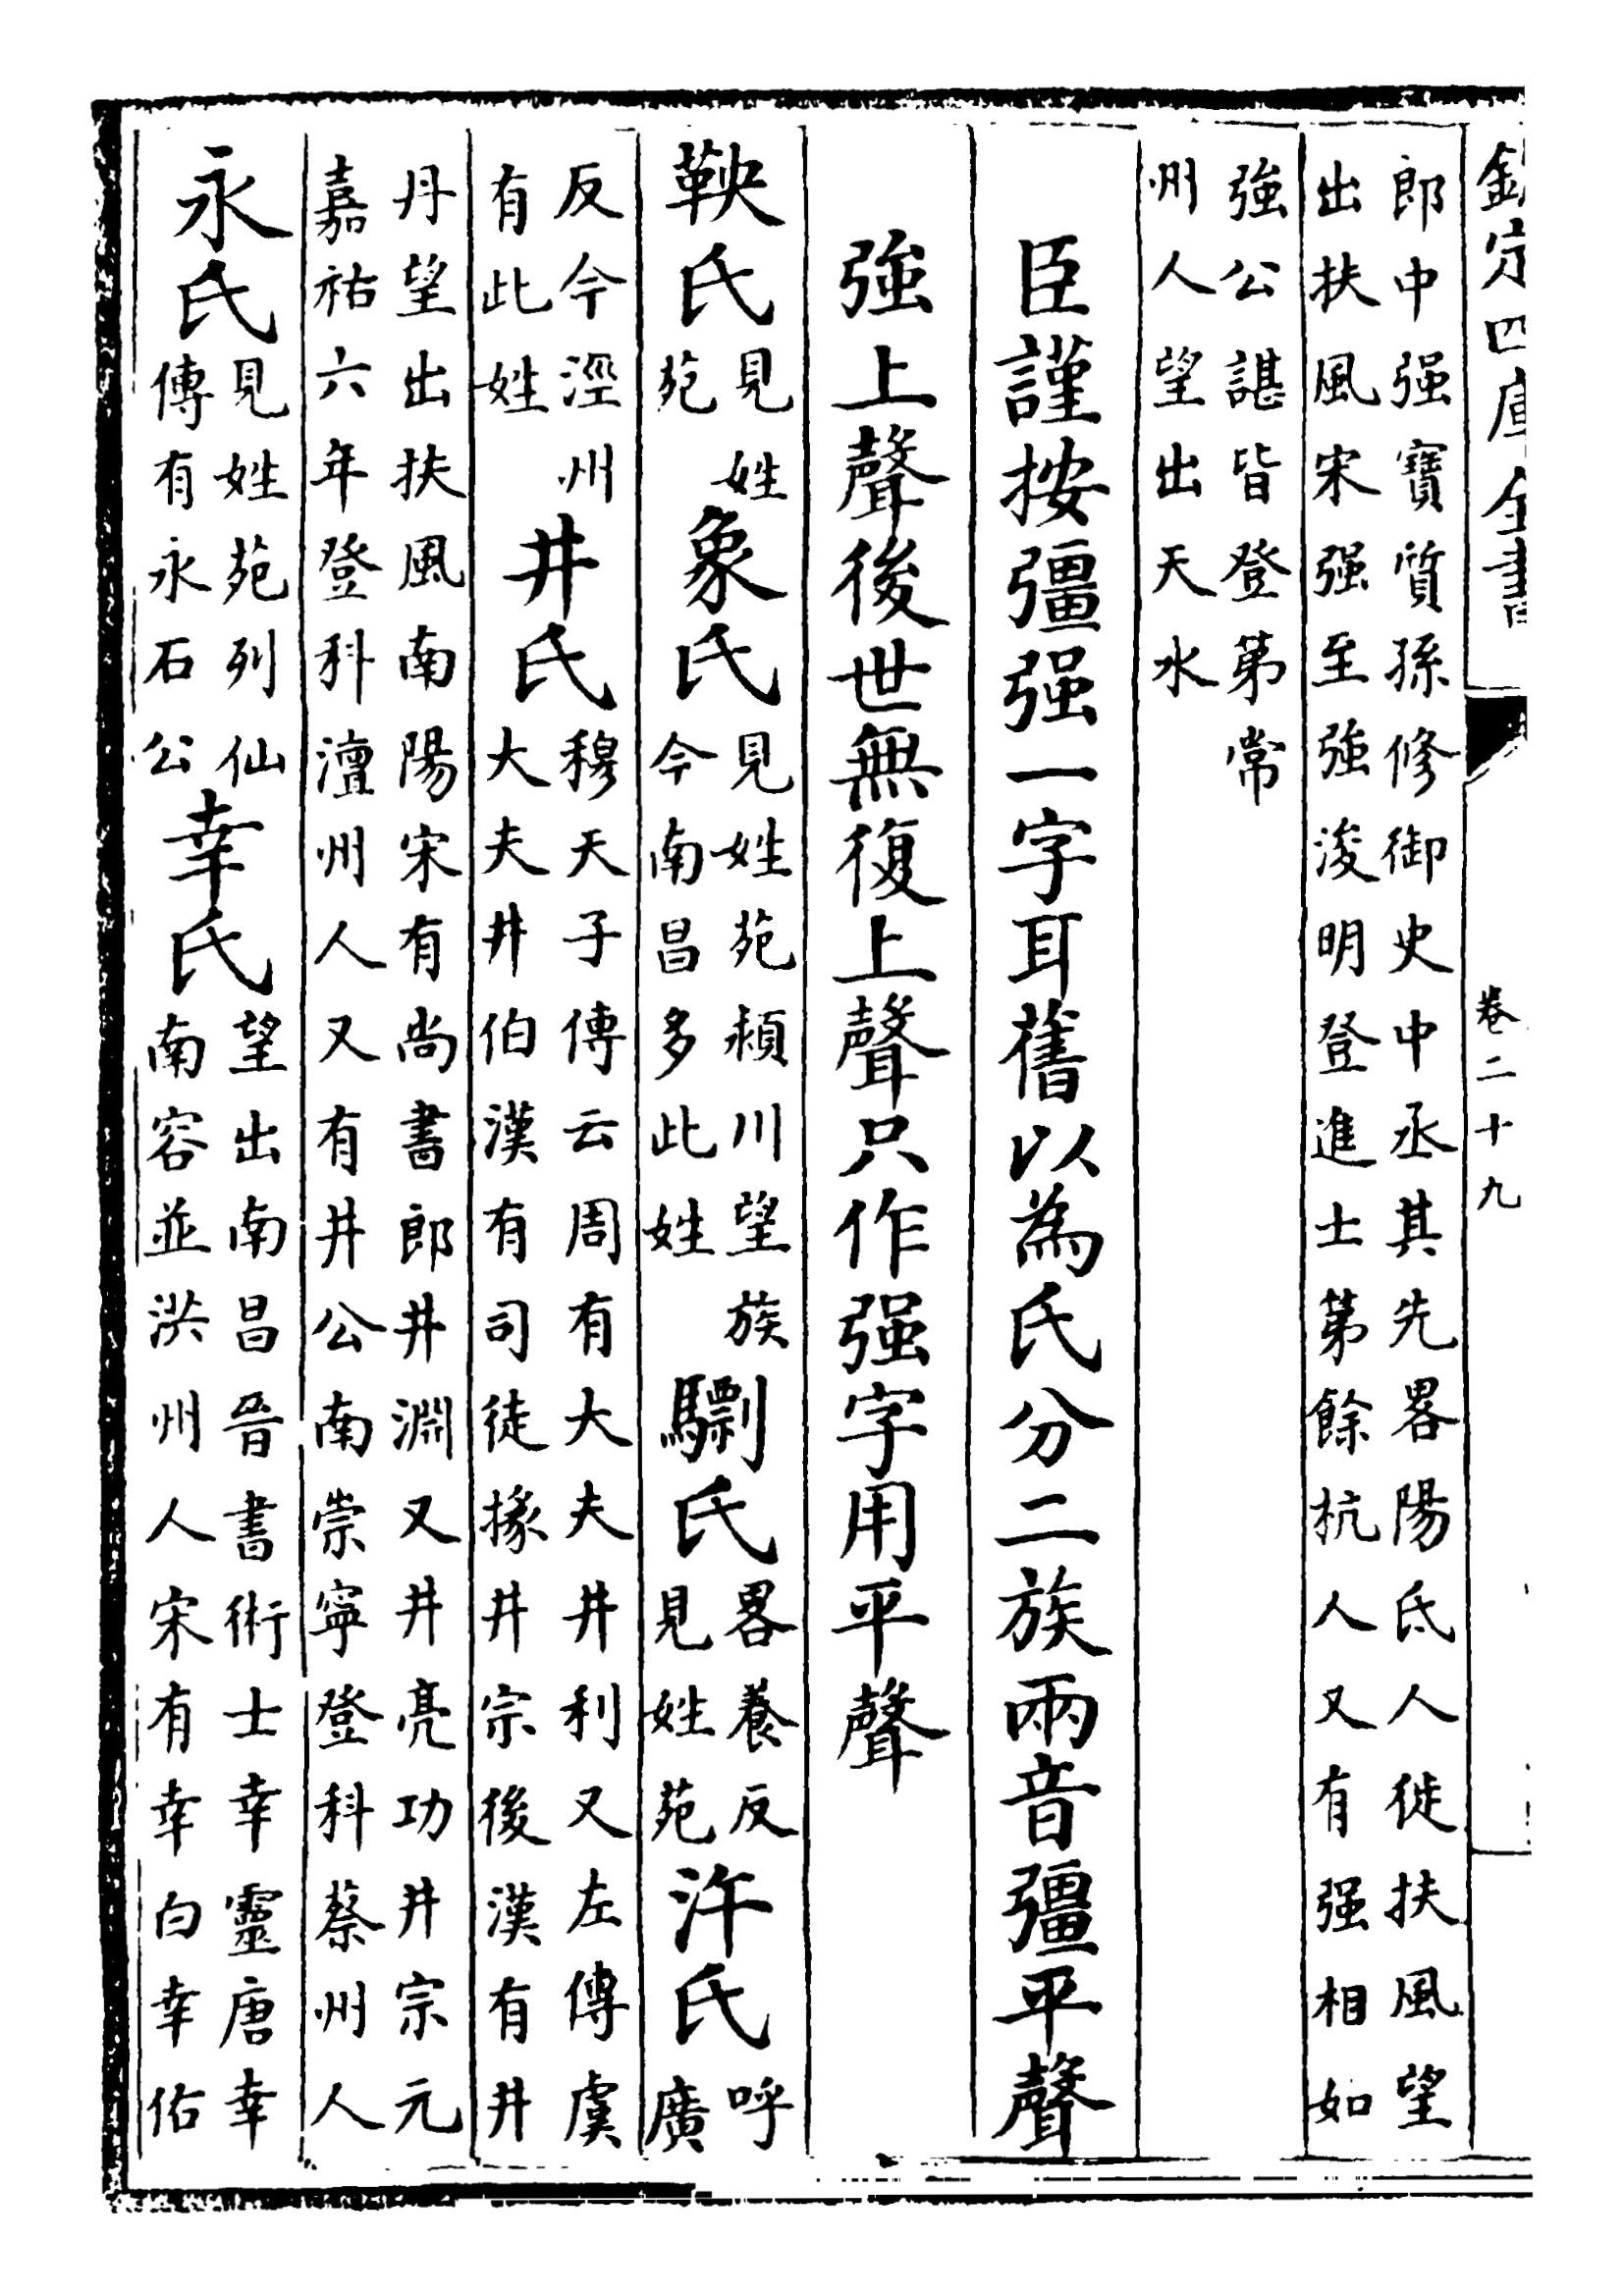 欽定四庫全書
卷二十九
郎中强寶質孫修御史中丞其先畧陽氐人徙扶風望
出扶風宋强至強浚明登進士第餘杭人又有强相如
強公諶皆登第常
州人望出天水
臣謹按彊强一字耳舊以為氏分二族兩音彊平聲
強上聲後世無復上聲只作强字用平聲
鞅氏見姓
苑
象氏見姓苑潁川望族
今南昌多此姓
驃氏畧養反
見姓苑
汻氏呼
廣
反今涇州
有此姓
井氏穆天子傳云周有大夫井利又左傳虞
大夫井伯漢有司徒掾井宗後漢有井
丹望出扶風南陽宋有尚書郎井淵又井亮功井宗元
嘉祐六年登科澶州人又有井公南崇寧登科蔡州人
永氏見姓苑列仙
傳有永石公
幸氏望出南昌晉書術士幸靈唐幸
南容並洪州人宋有幸白幸佑